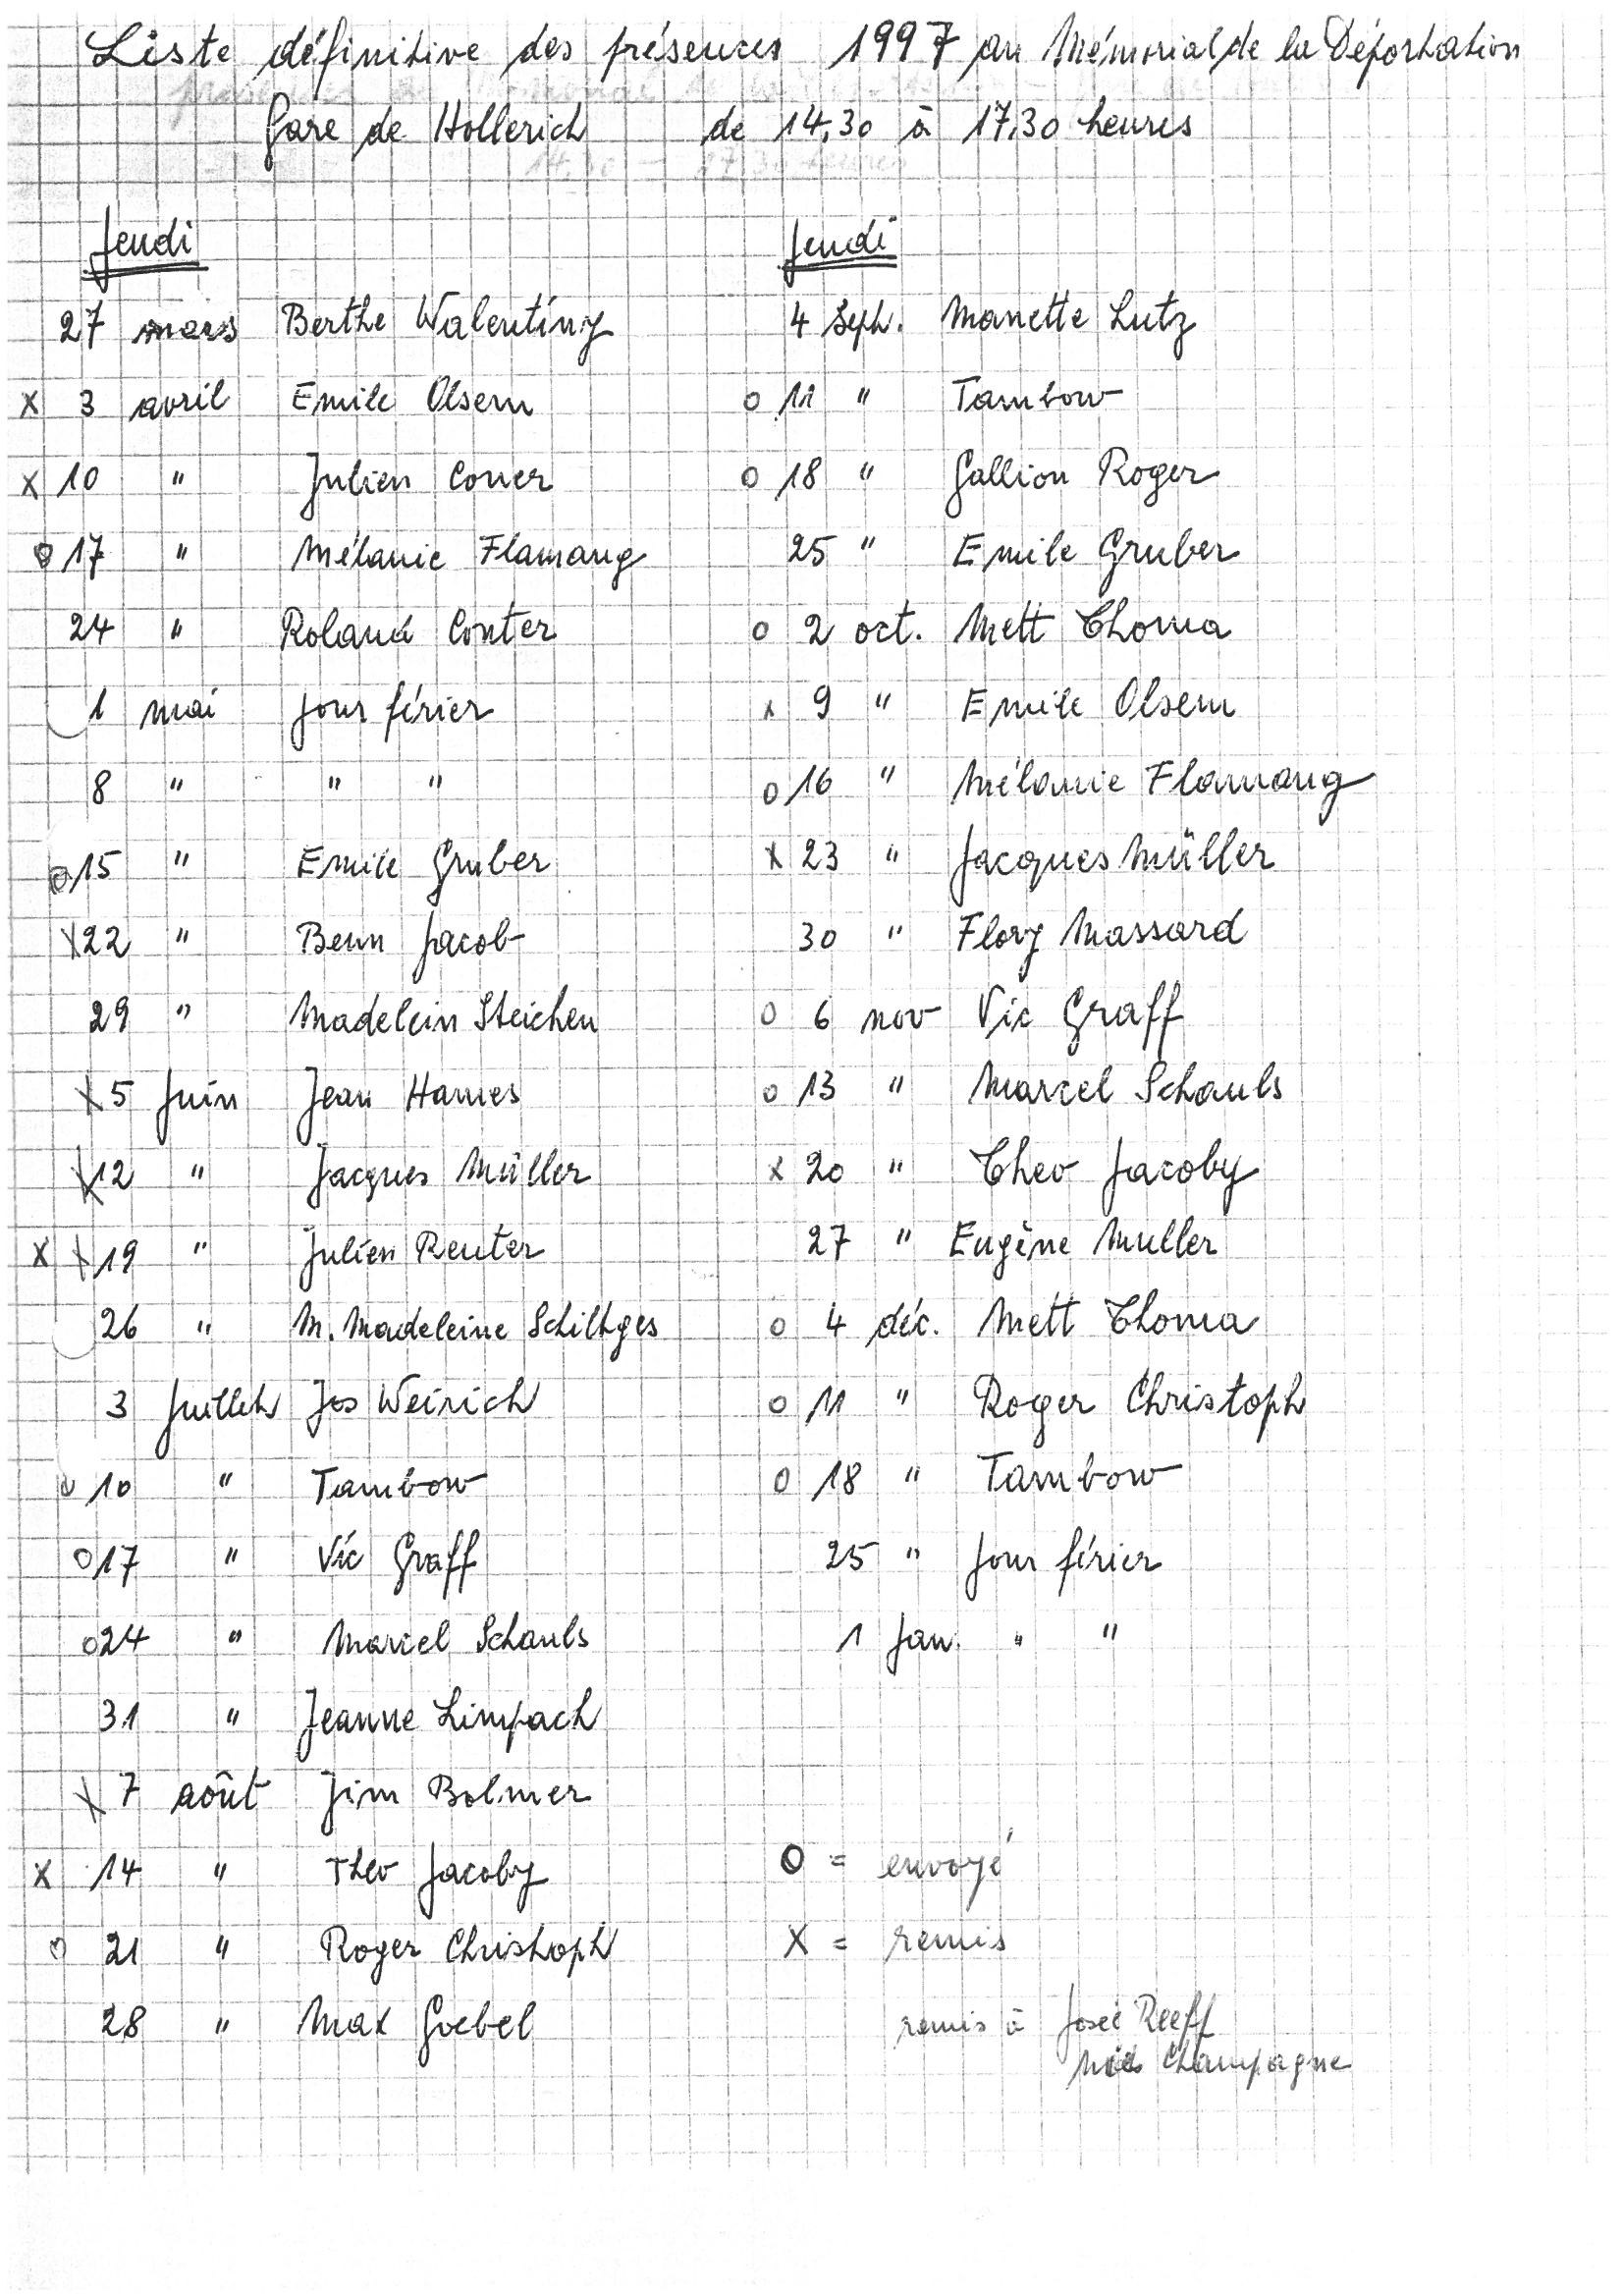 Liste définitive des présences 1997 au Mémorial de la Déportation
Gare de Hollerich de 14,30 à 17,30 heures
14,30 - 17,30 heures
Jeudi
27 mars Berthe Walentiny
X 3 avril Emile Olsem
X 10 " Julien Coner
O 17 " Mélanie Flamang
24 " Roland Conter
1 mai jour férier
8 " " "
O 15 " Emile Gruber
X 22 " Benn Jacob
29 " Madelein Steichen
X 5 Juin Jean Hames
X 12 " Jacques Müller
X X 19 " Julien Reuter
26 " M. Madeleine Schiltges
3 Juillet Jos Weirich
O 10 " Tambow
O 17 " Vic Graff
O 24 " Marcel Schauls
31 " Jeanne Limpach
X 7 août Jim Bolmer
X 14 " Theo Jacoby
O 21 " Roger Christoph
28 " Max Goebel
Jeudi
4 Sept. Manette Lutz
O 11 " Tambow
O 18 " Gallion Roger
25 " Emile Gruber
O 2 oct. Mett Thoma
X 9 " Emile Olsem
O 16 " Mélanie Flamang
X 23 " Jacques Müller
30 " Flory Massard
O 6 nov Vic Graff
O 13 " Marcel Schauls
X 20 " Theo Jacoby
27 " Eugène Muller
O 4 déc. Mett Thoma
O 11 " Roger Christoph
O 18 " Tambow
25 " jour férier
1 Jan. " "
O = envoyé
X = remis
remis à Josée Reeff
Champagne